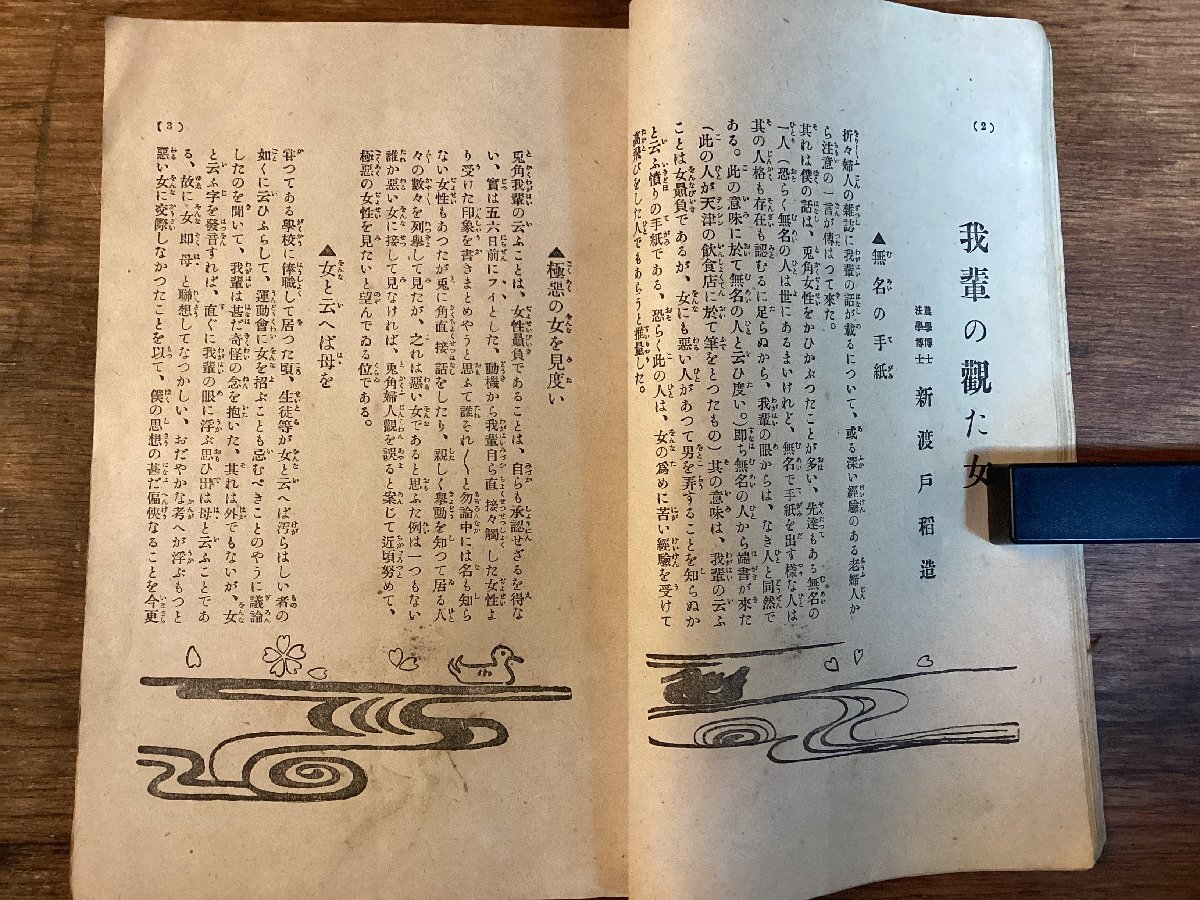 (2)
我輩の觀た女
農學博士
法學博士
新渡戸稻造
折々婦人の雜誌に我輩の話が載るについて、或る深い經驗のある老婦人か
ら注意の一言が傳はつて來た。
▲無名の手紙
其れは僕の話は、兎角女性をかひかぶつたことが多い、先達もある無名の
一人(恐らく無名の人は世にあるまいけれど、無名で手紙を出す樣な人は
其の人格も存在も認むるに足らぬから、我輩の眼からは、なき人と同然で
ある。此の意味に於て無名の人と云ひ度い。)即ち無名の人から端書が來た
(此の人が天津の飲食店に於て筆をとつたもの)其の意味は、我輩の云ふ
ことは女贔負であるが、女にも惡い人があつて男を弄することを知らぬか
と云ふ憤りの手紙である、恐らく此の人は、女の爲めに苦い經驗を受けて
高飛びをした人でもあらうと推量した。
▲極惡の女を見度い
兎角我輩の云ふことは、女性贔負であることは、自らも承認せざるを得な
い、實は五六日前にフイとした、動機から我輩自ら直接々觸した女性よ
り受けた印象を書きまとめやうと思ふて誰それ〱勿論中には名も知ら
ない女性もあつたが兎に角直接話をしたり、親しく擧動を知つて居る人
々の數々を列擧して見たが、之れは惡い女であると思ふた例は一つもない
誰か惡い女に接して見なければ、兎角婦人觀を誤ると案じて近頃努めて、
極惡の女性を見たいと望んでゐる位である。
▲女と云へば母を
甞つてある學校に俸職して居つた頃、生徒等が女と云へば汚らはしい者の
如くに云ひふらして、運動會に女を招ぶことも忌むべきことのやうに議論
したのを聞いて、我輩は甚だ奇怪の念を抱いた、其れは外でもないが、女
と云ふ字を發言すれば、直ぐに我輩の眼に浮ぶ思ひ出は母と云ふことであ
る、故に女即母と聯想してなつかしい、おだやかな考へが浮ぶもつと
惡い女に交際しなかつたことを以て、僕の思想の甚だ偏俠なることを今更
(3)